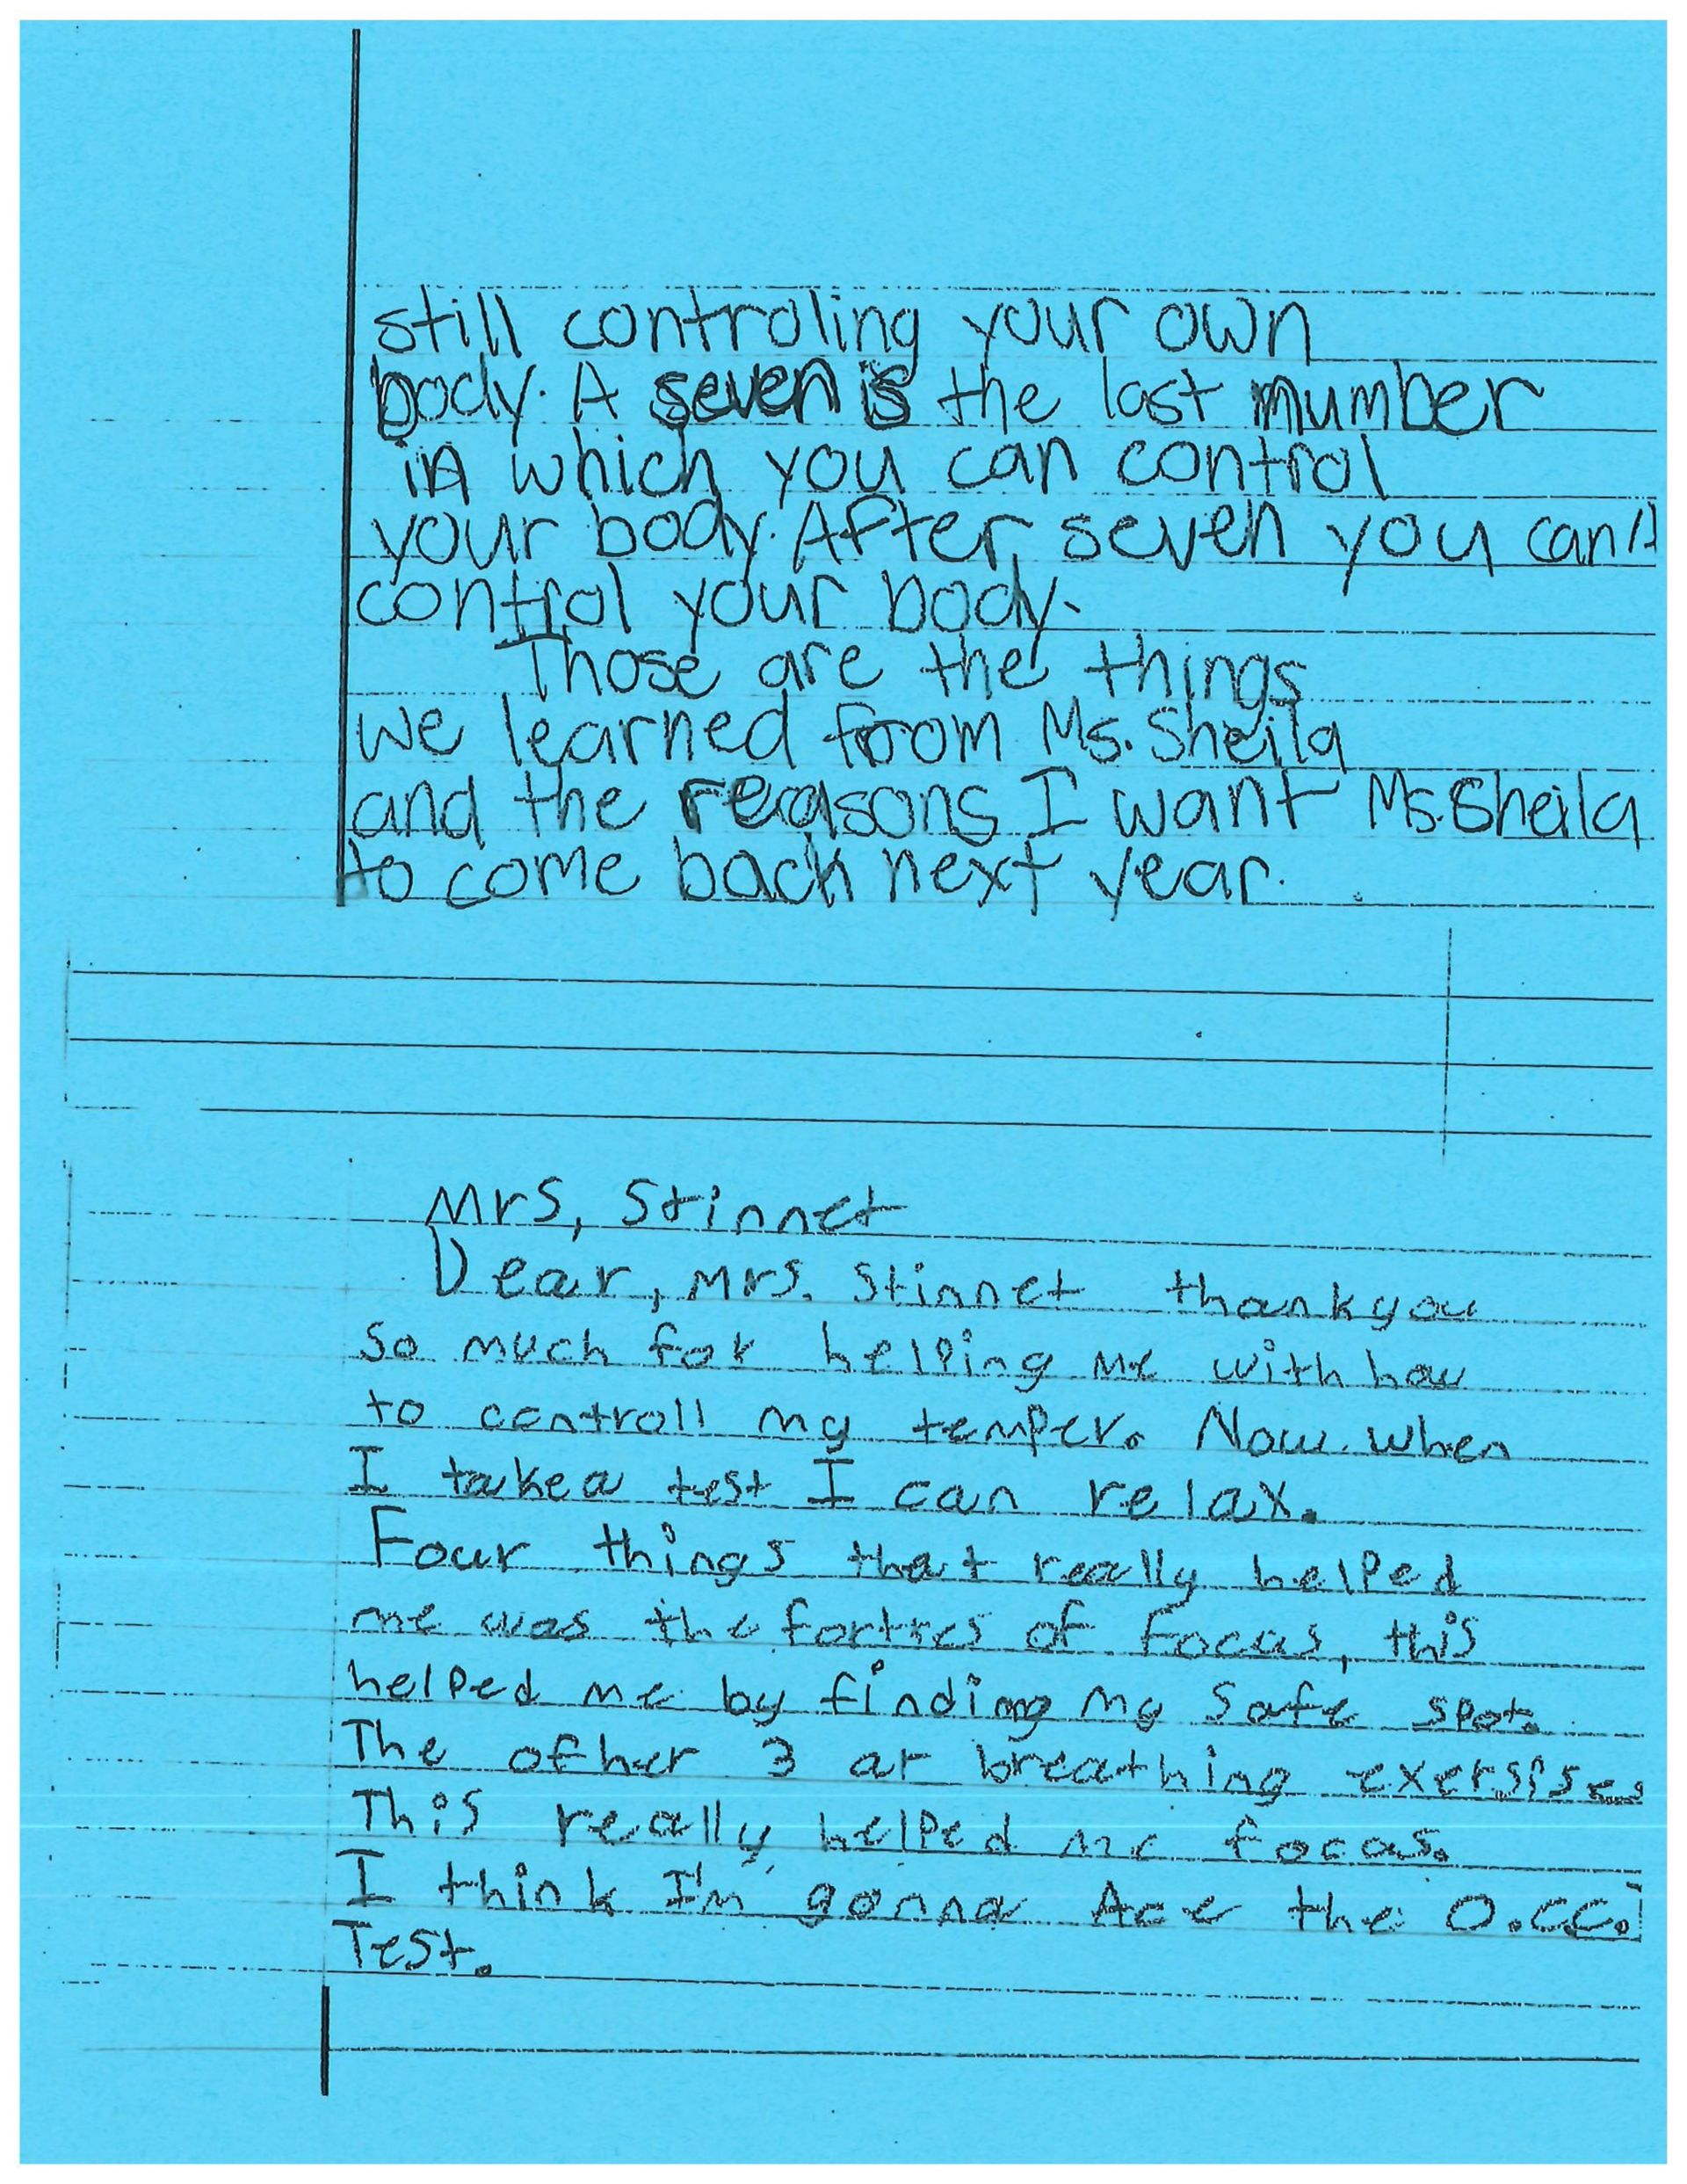 still controling your own
body. A seven is the last mumber
in which you can control
your body. After seven you can't
control your body.
Those are the things
we learned from Ms. Sheila
and the reasons I want Ms. Sheila
to come back next year.
Mrs, Stinnet
Dear, Mrs. Stinnet thankyou
so much for helping me with how
to controll my temper. Now when
I take a test I can relax.
Four things that really helped
me was the fortres of Focus, this
helped me by finding my safe spot.
The other 3 ar breathing exersises
This really helped me focus.
I think I'm gonna Ace the O.CC.
Test.